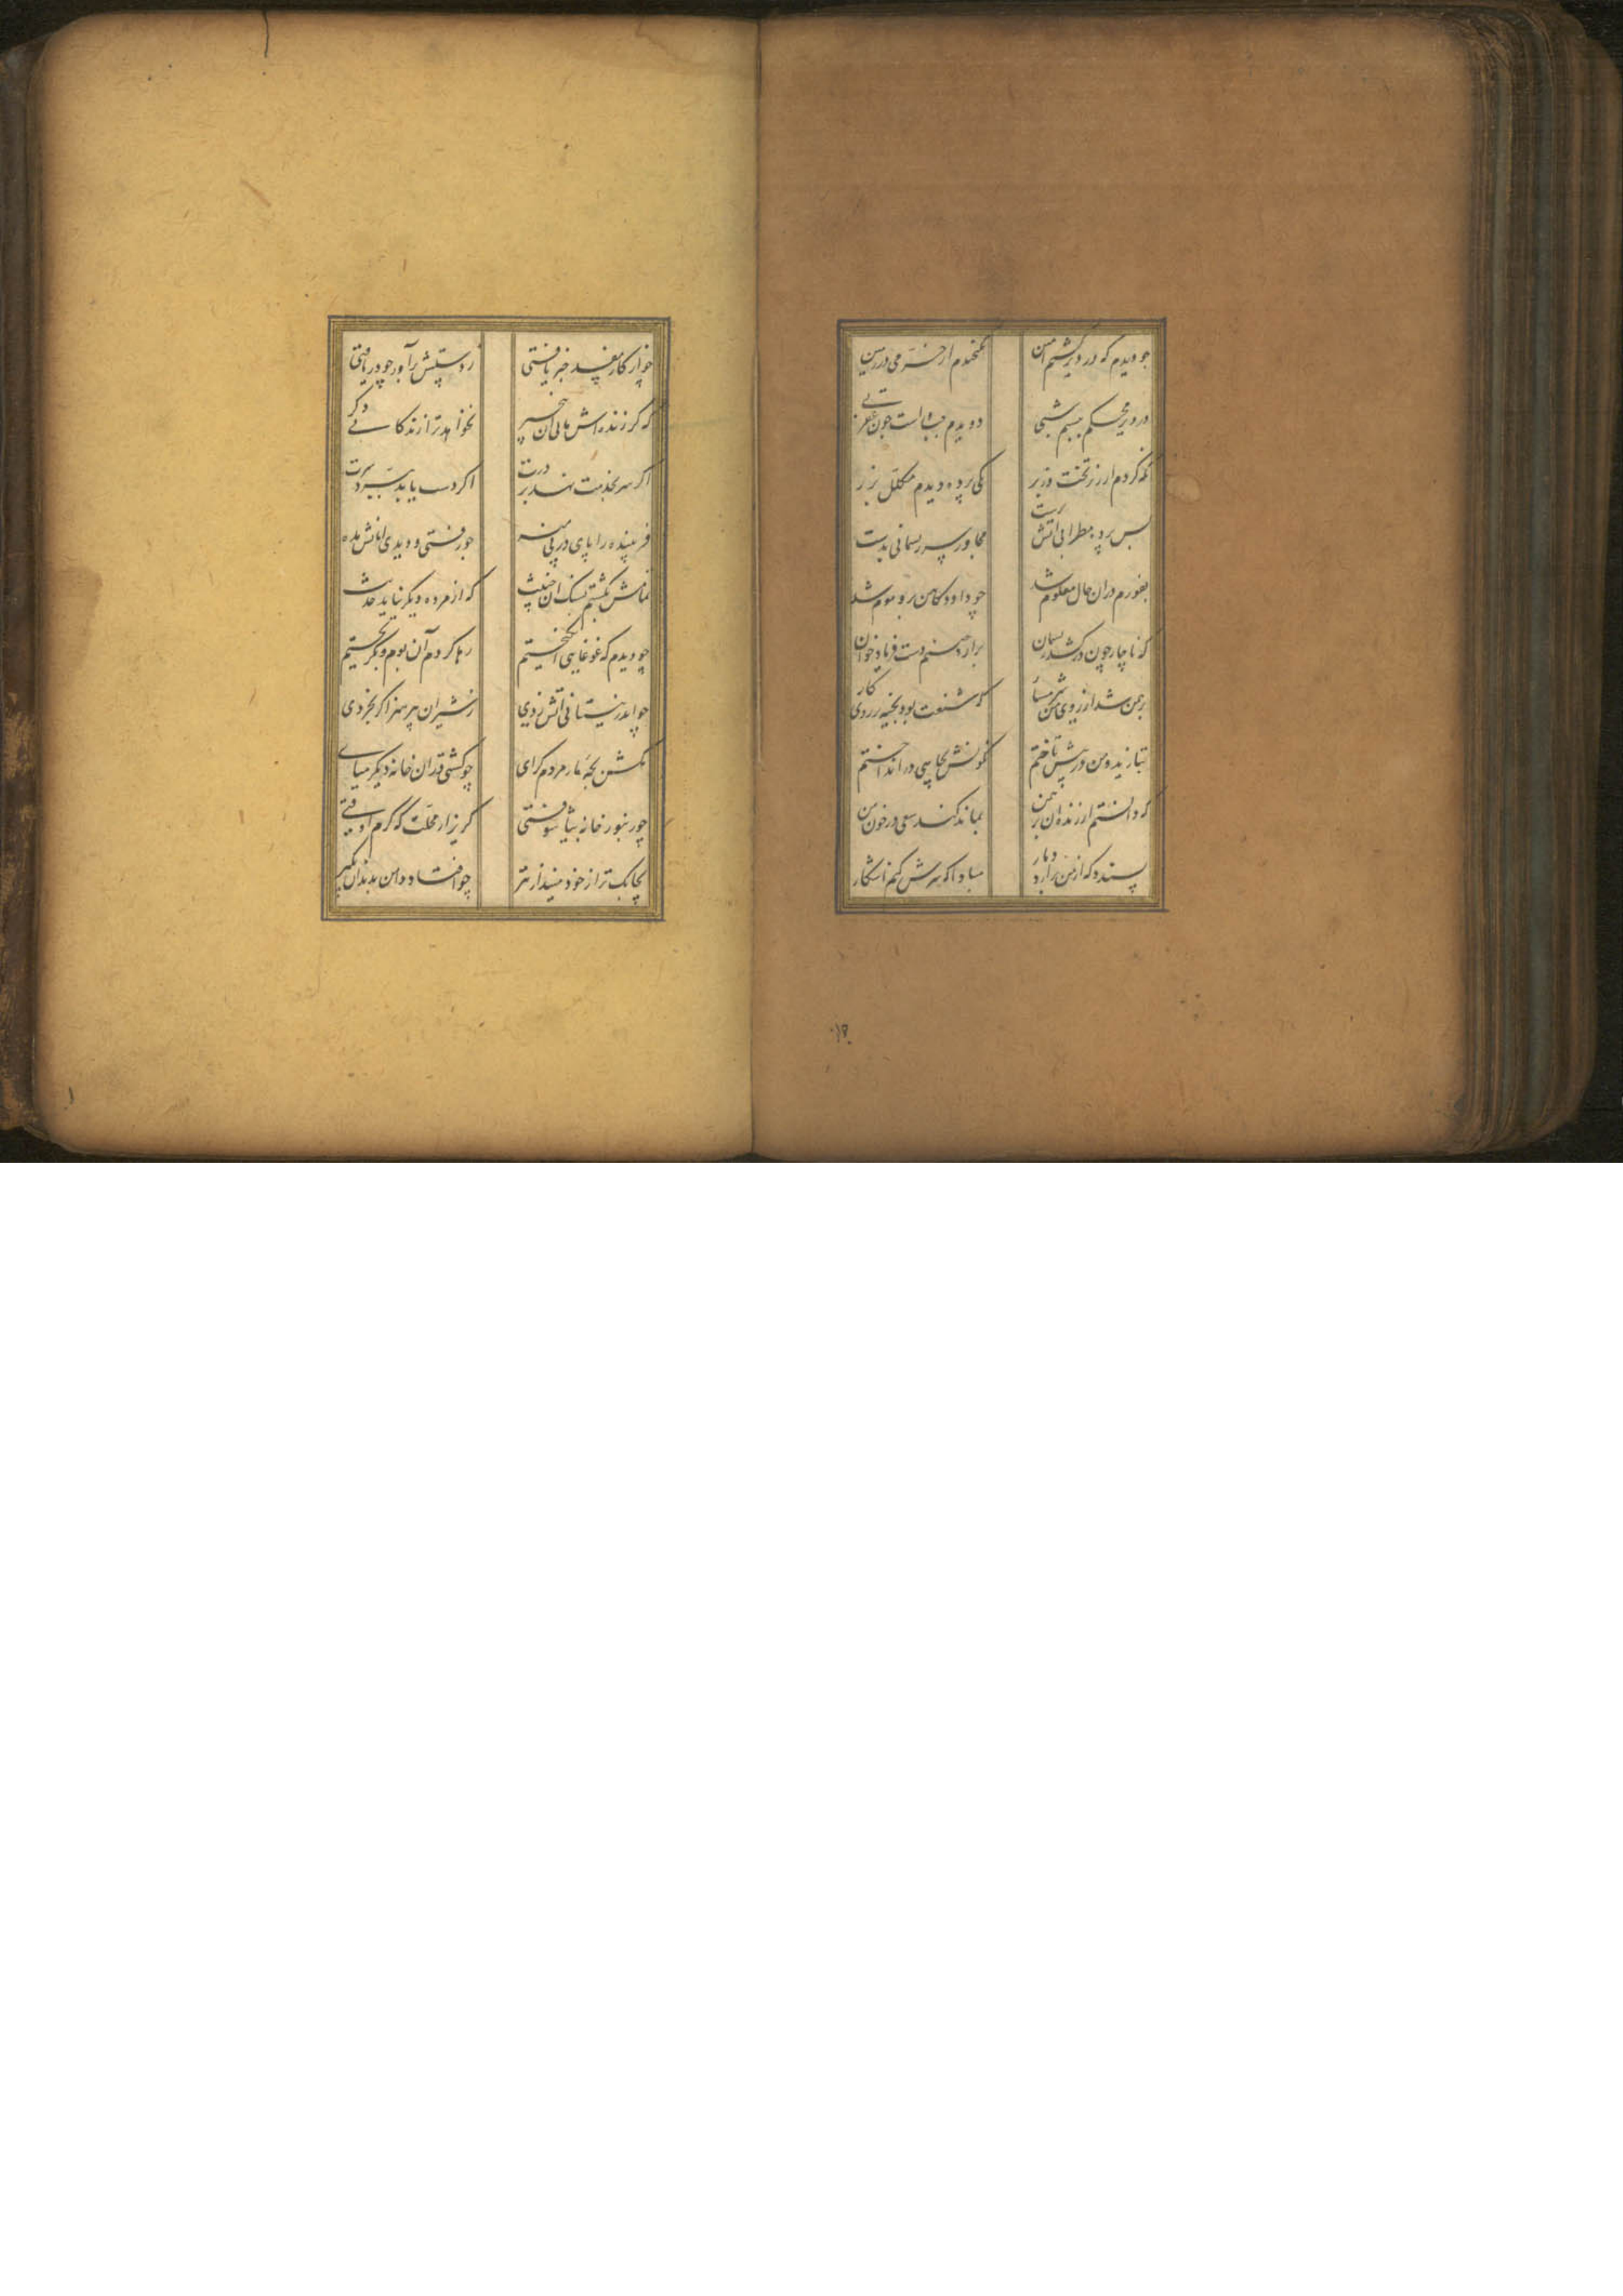 چو دیدم که در دیر گشتم امین نگنجیدم از خرمی در زمین
در دیر محکم ببستم شبی دویدم چپ و راست چون عقربی
نگه کردم از زیر تخت و زبر یکی پرده دیدم مکلل بزر
پس پرده مطرانی آتش پرست مجاور سر ریسمانی بدست
بفورم در آن حال معلوم شد چو داود کاهن برو موم شد
که ناچار چون در کشد ریسمان برآرد صنم دست فریاد خوان
برهمن شد از روی من شرمسار که شنعت بود بخیه بر روی کار
بتازید و من در پیش تاختم نگونش بچاهی در انداختم
که دانستم ار زنده آن برهمن بماند کند سعی در خون من
پسندد که از من برآرد دمار مبادا که سرش کنم آشکار
چو از کار مفسد خبر یافتی ز دستش برآور چو دریافتی
که گر زنده‌اش مانی آن بی هنر نخواهد ترا زندگانی دگر
اگر سر بخدمت نهد بر درت اگر دست یابد ببرد سرت
فریبنده را پای در پی منه چو رفتی و دیدی امانش مده
تمامش بکشتم بسنگ آن خبیث که از مرده دیگر نیاید حدیث
چو دیدم که غوغایی انگیختم رها کردم آن بوم و بگریختم
چو اندر نیستانی آتش زدی ز شیران بپرهیز اگر بخردی
مکش بچه مار مردم گزای چو کشتی در آن خانه دیگر مپای
چو زنبور خانه بیاشوفتی گریز از محلت که گرم اوفتی
بچابک تر از خود مینداز تیر چو افتاد دامن بدندان بگیر